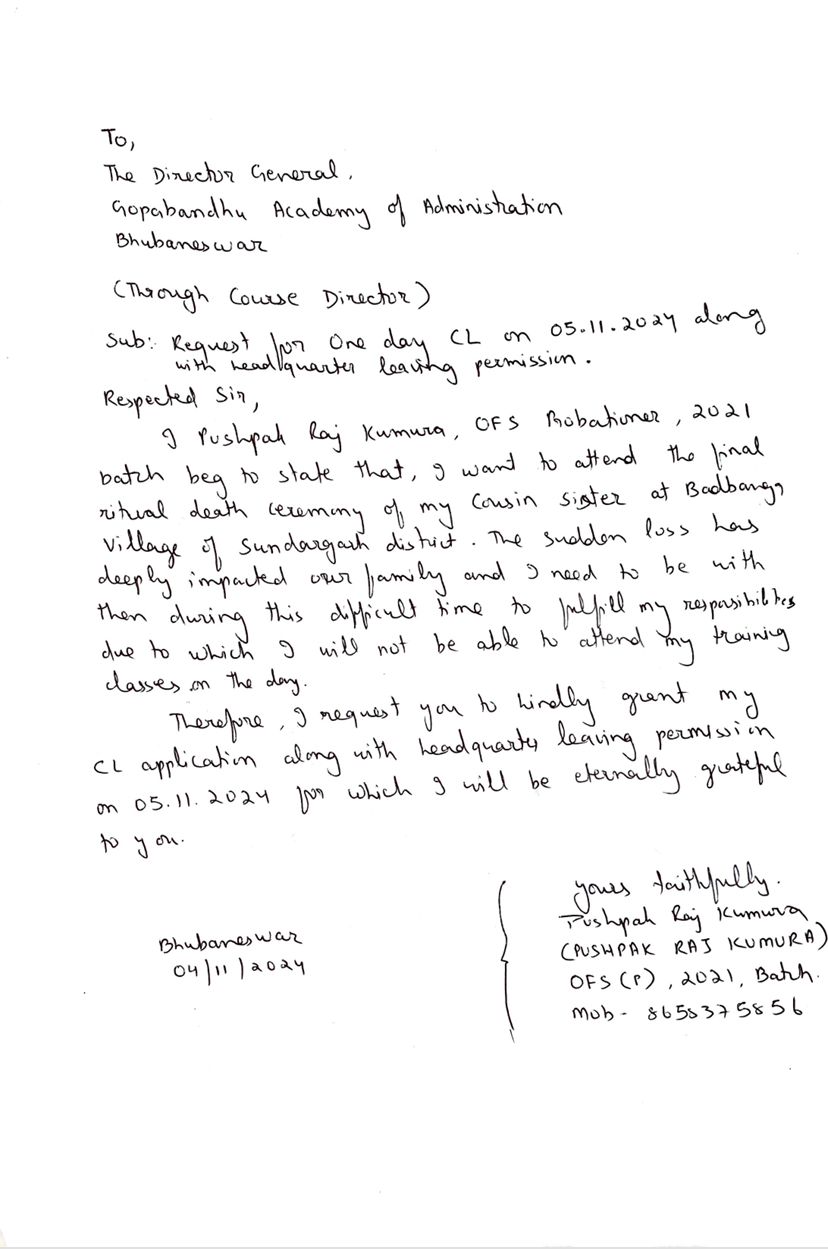 To,
The Director General,
Gopabandhu Academy of Administration
Bhubaneswar
(Through Course Director)
Sub: Request for One day CL on 05.11.2024 along
with headquarter leaving permission.
Respected Sir,
I Pushpak Raj Kumura, OFS Probationer, 2021
batch beg to state that, I want to attend the final
ritual death ceremony of my Cousin sister at Badbanga
Village of Sundargarh district. The sudden loss has
deeply impacted our family and I need to be with
then during this difficult time to fulfill my responsibilities
due to which I will not be able to attend my training
classes on the day.
Therefore, I request you to kindly grant my
CL application along with headquarter leaving permission
on 05.11.2024 for which I will be eternally grateful
to you.
Bhubaneswar
04/11/2024
yours faithfully.
Pushpak Raj Kumura
(PUSHPAK RAJ KUMURA)
OFS (P), 2021, Batch.
Mob - 8658375856